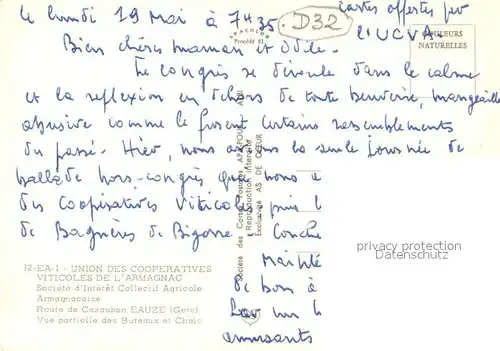 le lundi 19 Mai à 7H35.
D32
cartes offertes par
l'UCVA
APACOLOR
Procédé
COULEURS
NATURELLES
Bien chères maman et Odile.
Le congrès se déroule dans le calme
et la reflexion en dehors de toute beuverie, mangeaille
abusive comme le furent certains rassemblements
du passé. Hier, nous avons la seule journée de
ballade hors-congrès
des Coopératives Viticoles puis
de Bagnères de Bigorre.
Société des Cartes Postales APA-POUX - ALBI
Reproduction interdite
Exclusivité AS DE CŒUR
privacy protection
Datenschutz
32-EA-1 - UNION DES COOPERATIVES
VITICOLES DE L'ARMAGNAC
Société d'Intérêt Collectif Agricole
Armagnacaise
Route de Cazaubon EAUZE (Gers)
Vue partielle des Bureaux et Chais
de bon à
sur le
amusants